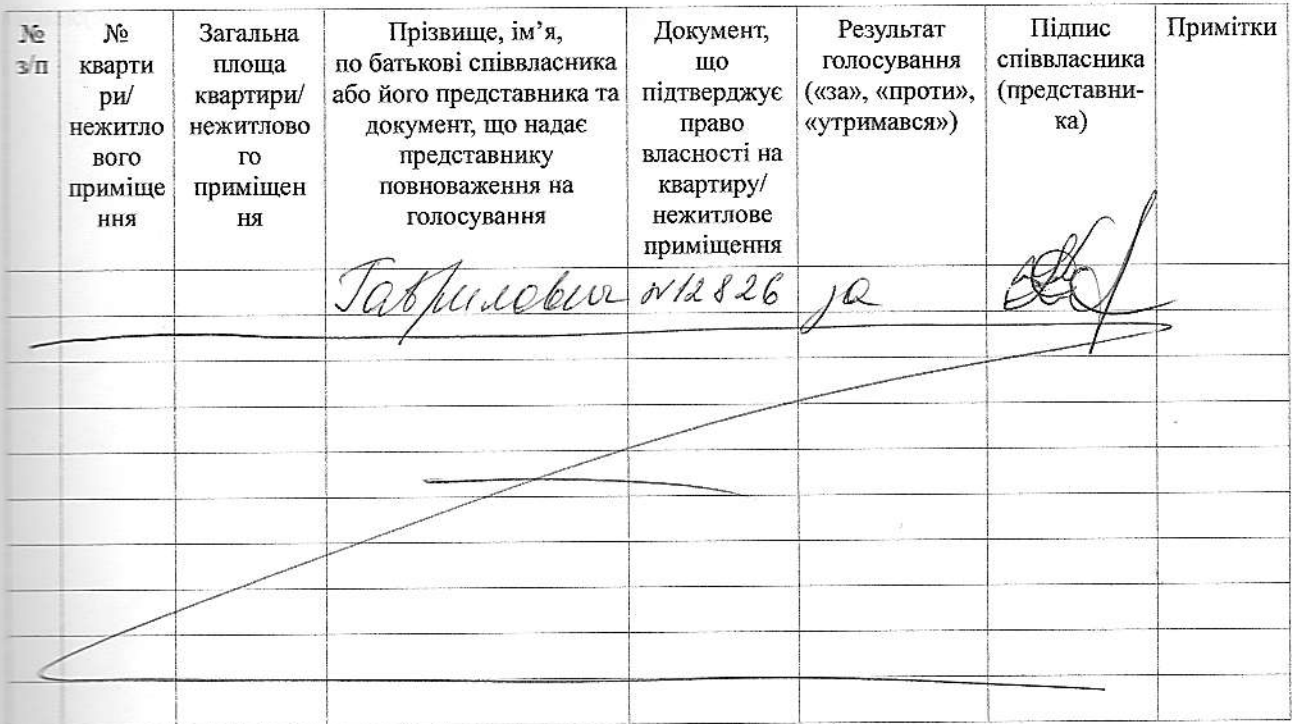 № з/п
№ кварти ри/ нежитло вого приміще ння
Загальна площа квартири/ нежитлово го приміщен ня
Прізвище, ім’я, по батькові співвласника або його представника та документ, що надає представнику повноваження на голосування
Документ, що підтверджує право власності на квартиру/ нежитлове приміщення
Результат голосування («за», «проти», «утримався»)
Підпис співвласника (представни- ка)
Примітки
Гаврилович №12826 за